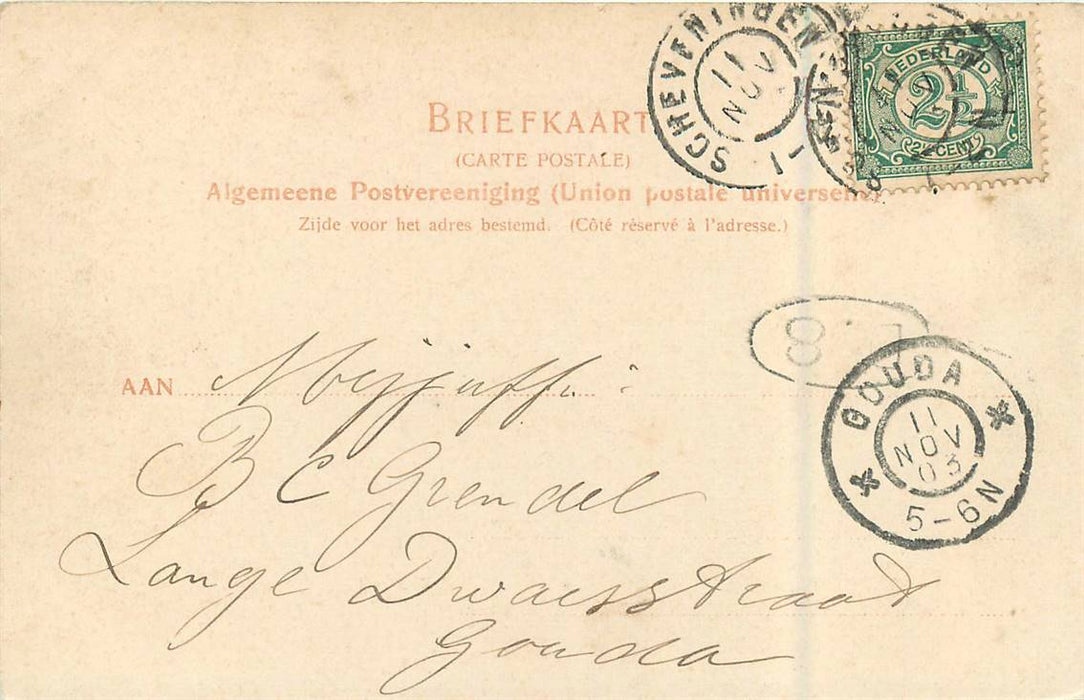 BRIEFKAART
(CARTE POSTALE)
Algemeene Postvereeniging (Union postale universelle)
Zijde voor het adres bestemd. (Côté réservé à l'adresse.)
SCHEVENINGEN
11
NOV
NEDERLAND
2½
2½ CENT
8
GOUDA
11
NOV
03
5-6N
AAN Mejjuff:
B C Grendel
Lange Dwarsstraat
Gouda